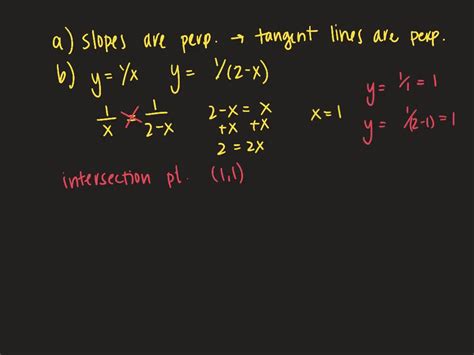 a) slopes are perp. → tangent lines are perp.
b) y = 1/x y = 1/(2-x)
1/x = 1/2-x
2-x = x
+x +x
2 = 2x
x=1
y = 1/1 = 1
y = 1/(2-1) = 1
intersection pt. (1,1)